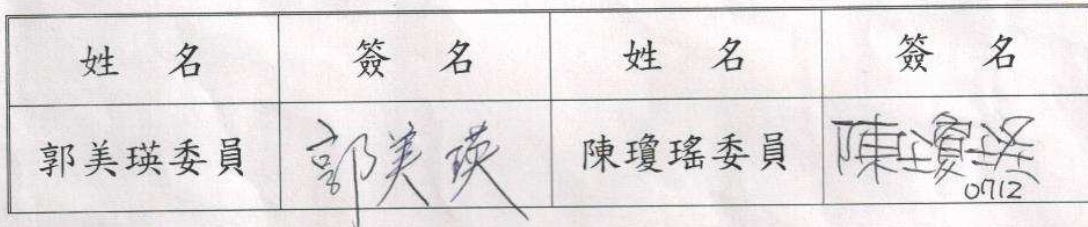 姓名 簽名 姓名 簽名
郭美瑛委員 郭美瑛 陳瓊瑤委員 陳瓊瑤
0712